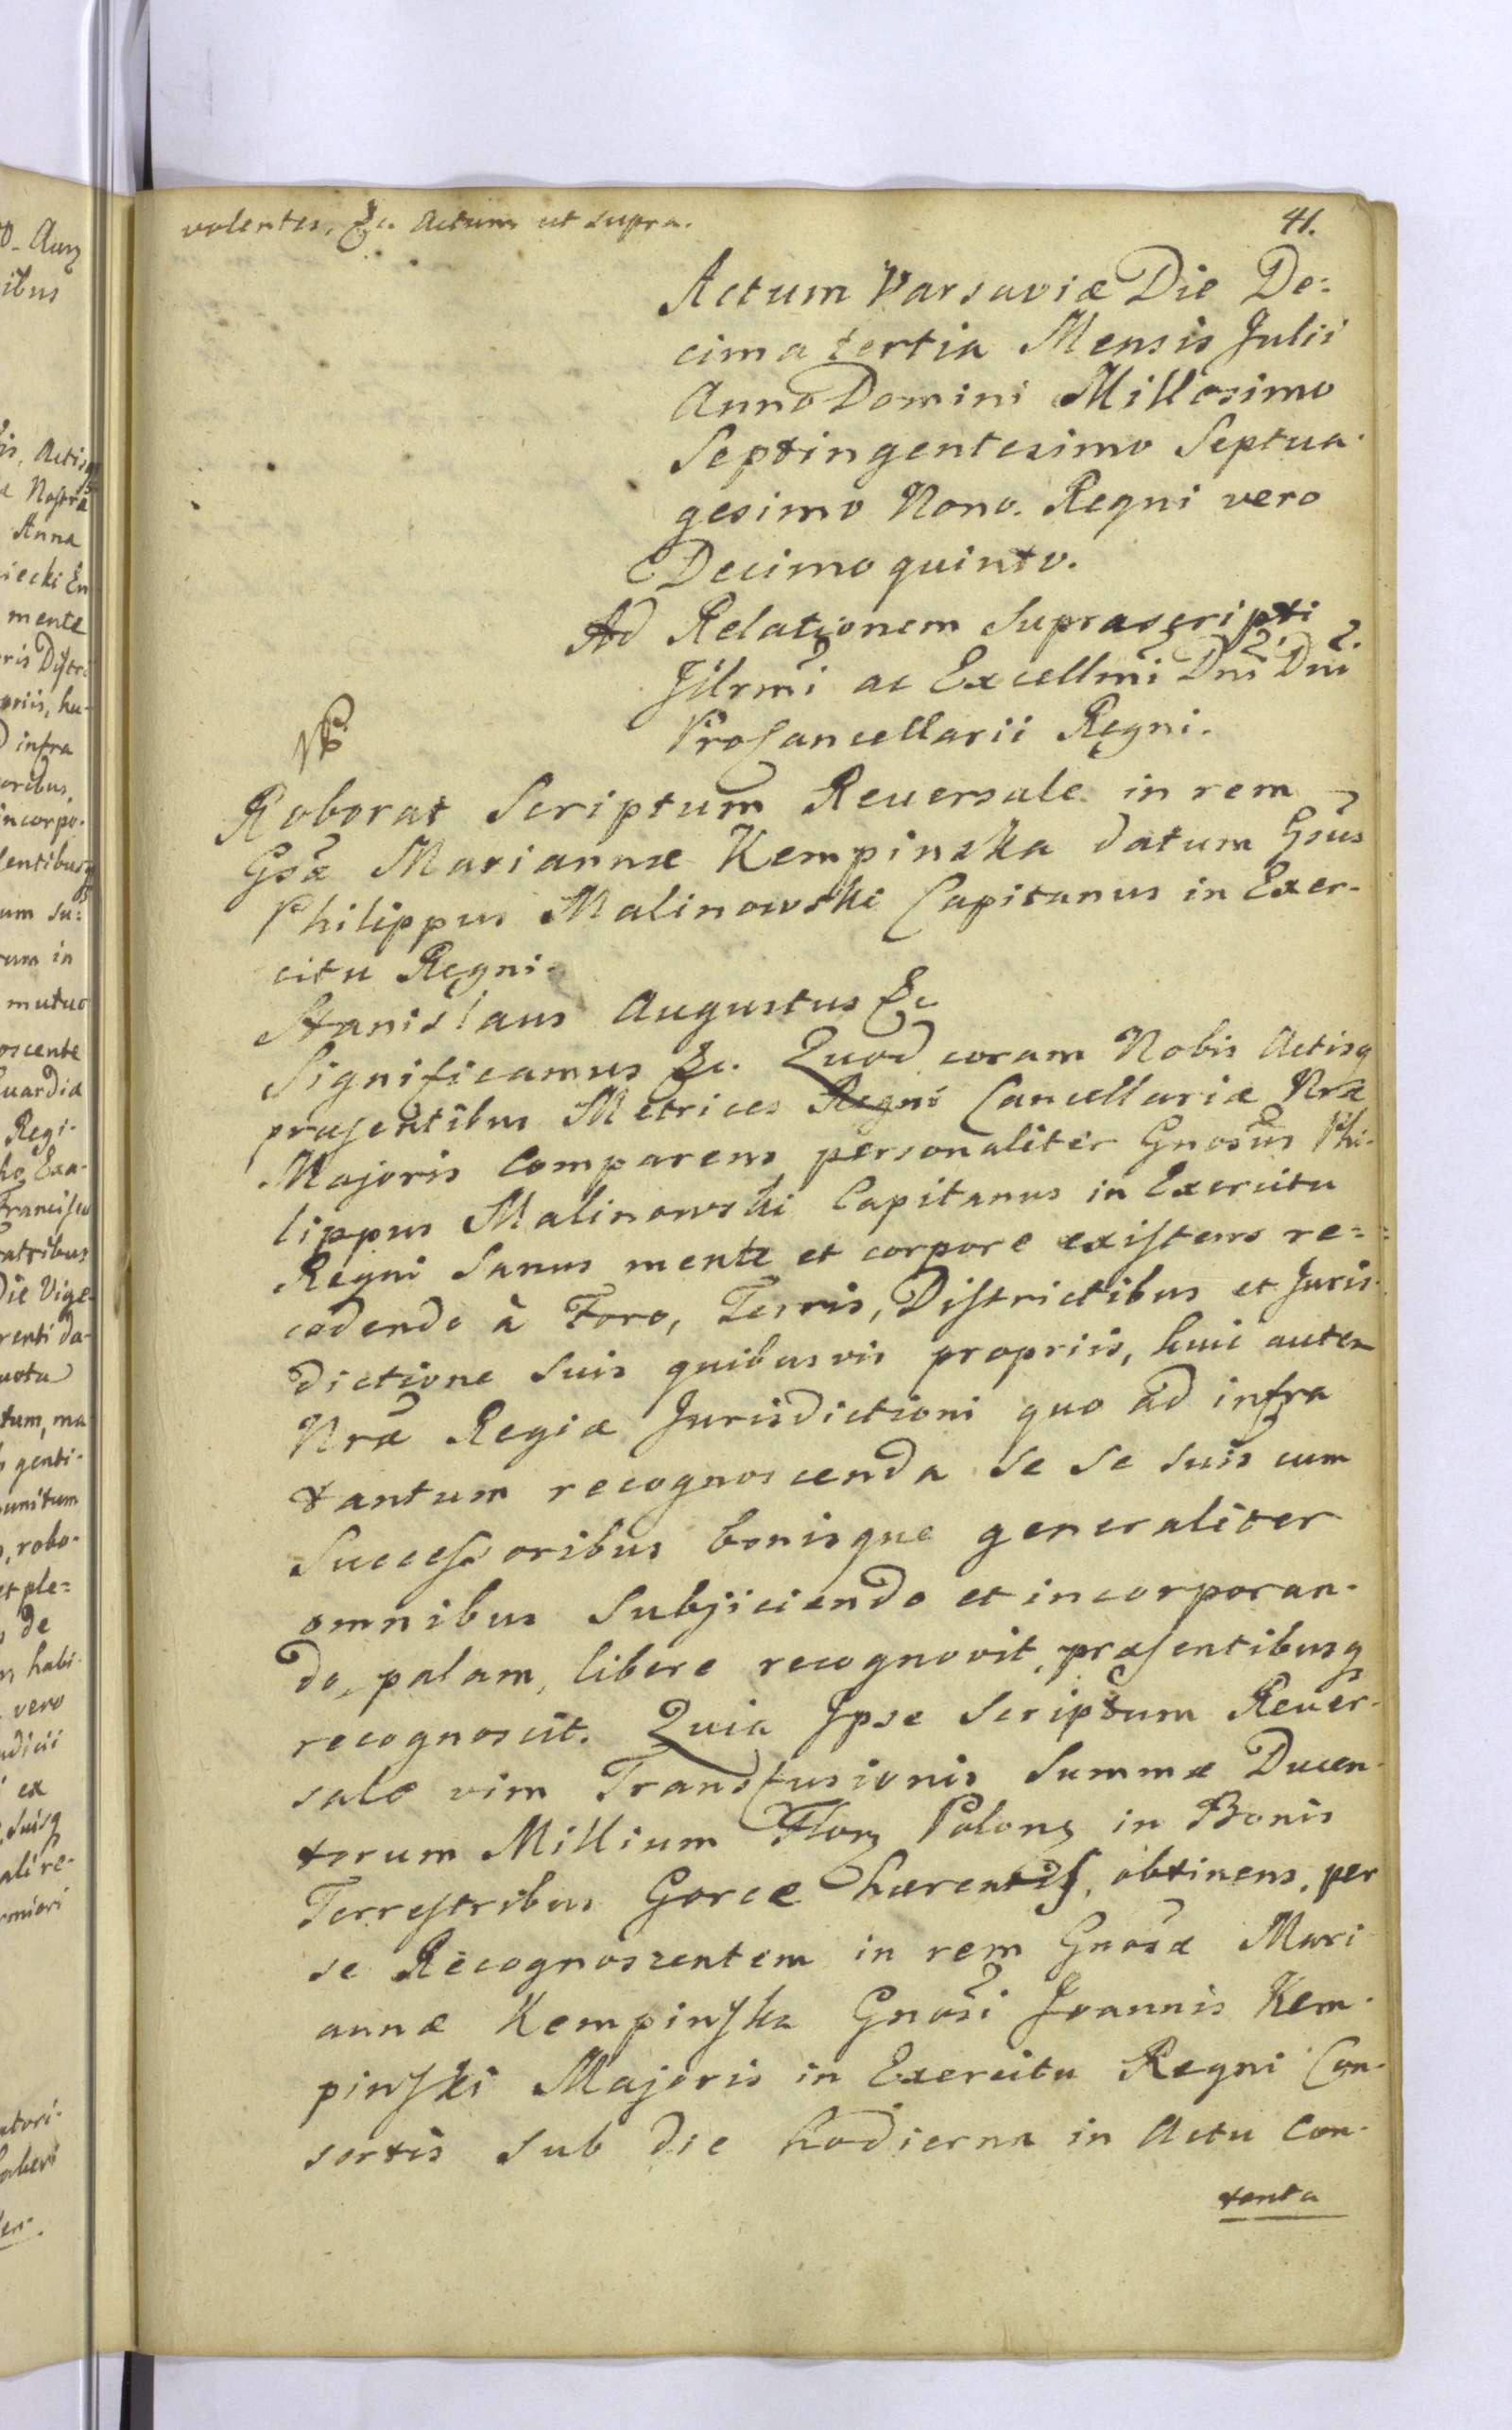 volentes, &c. Actum ut supra.
41.
Actum Varsaviæ Die De=
cima tertia Mensis Julii
Anno Domini Millesimo
Septingentesimo Septua-
gesimo Nono. Regni vero
Decimo quinto.
Ad Relationem Suprascripti
Jllrmi ac Excellmi Dni Dni
ProCancellarii Regni.
Roborat Scriptum Reuersale in rem
Gsæ Mariannæ Kempinska datum Gsus
Philippus Malinowski Capitanus in Exer-
citu Regni.
Stanislaus Augustus &c
Significamus &c. Quod coram Nobis Actisq
præsentibus Metrices Regni Cancellariæ Nræ
Majoris Comparens personaliter Gnosus Phi-
lippus Malinowski Capitanus in Exercitu
Regni Sanus mente et corpore existens re=
cedendo à Foro, Terris, Districtibus et Juris-
dictione Suis quibusvis propriis, huic autem
Nræ Regiæ Jurisdictioni quo ad infra
tantum recognoscenda Se Se Suis cum
Successoribus bonisque generaliter
omnibus Subjiciendo et incorporan-
do, palam, libere recognovit, præsentibusq
recognoscit. Quia Jpse Scriptum Reuer-
sale vim Transfusionis Summæ Ducen-
torum Millium Flor Polon in Bonis
Terrestribus Gorce hærentis, obtinens, per
se Recognoscentem in rem Gnosæ Mari
annæ Kempinska Gnosi Joannis Kem-
pinski Majoris in Exercitu Regni Con-
sortis Sub die hodierna in Actu Con-
tenta